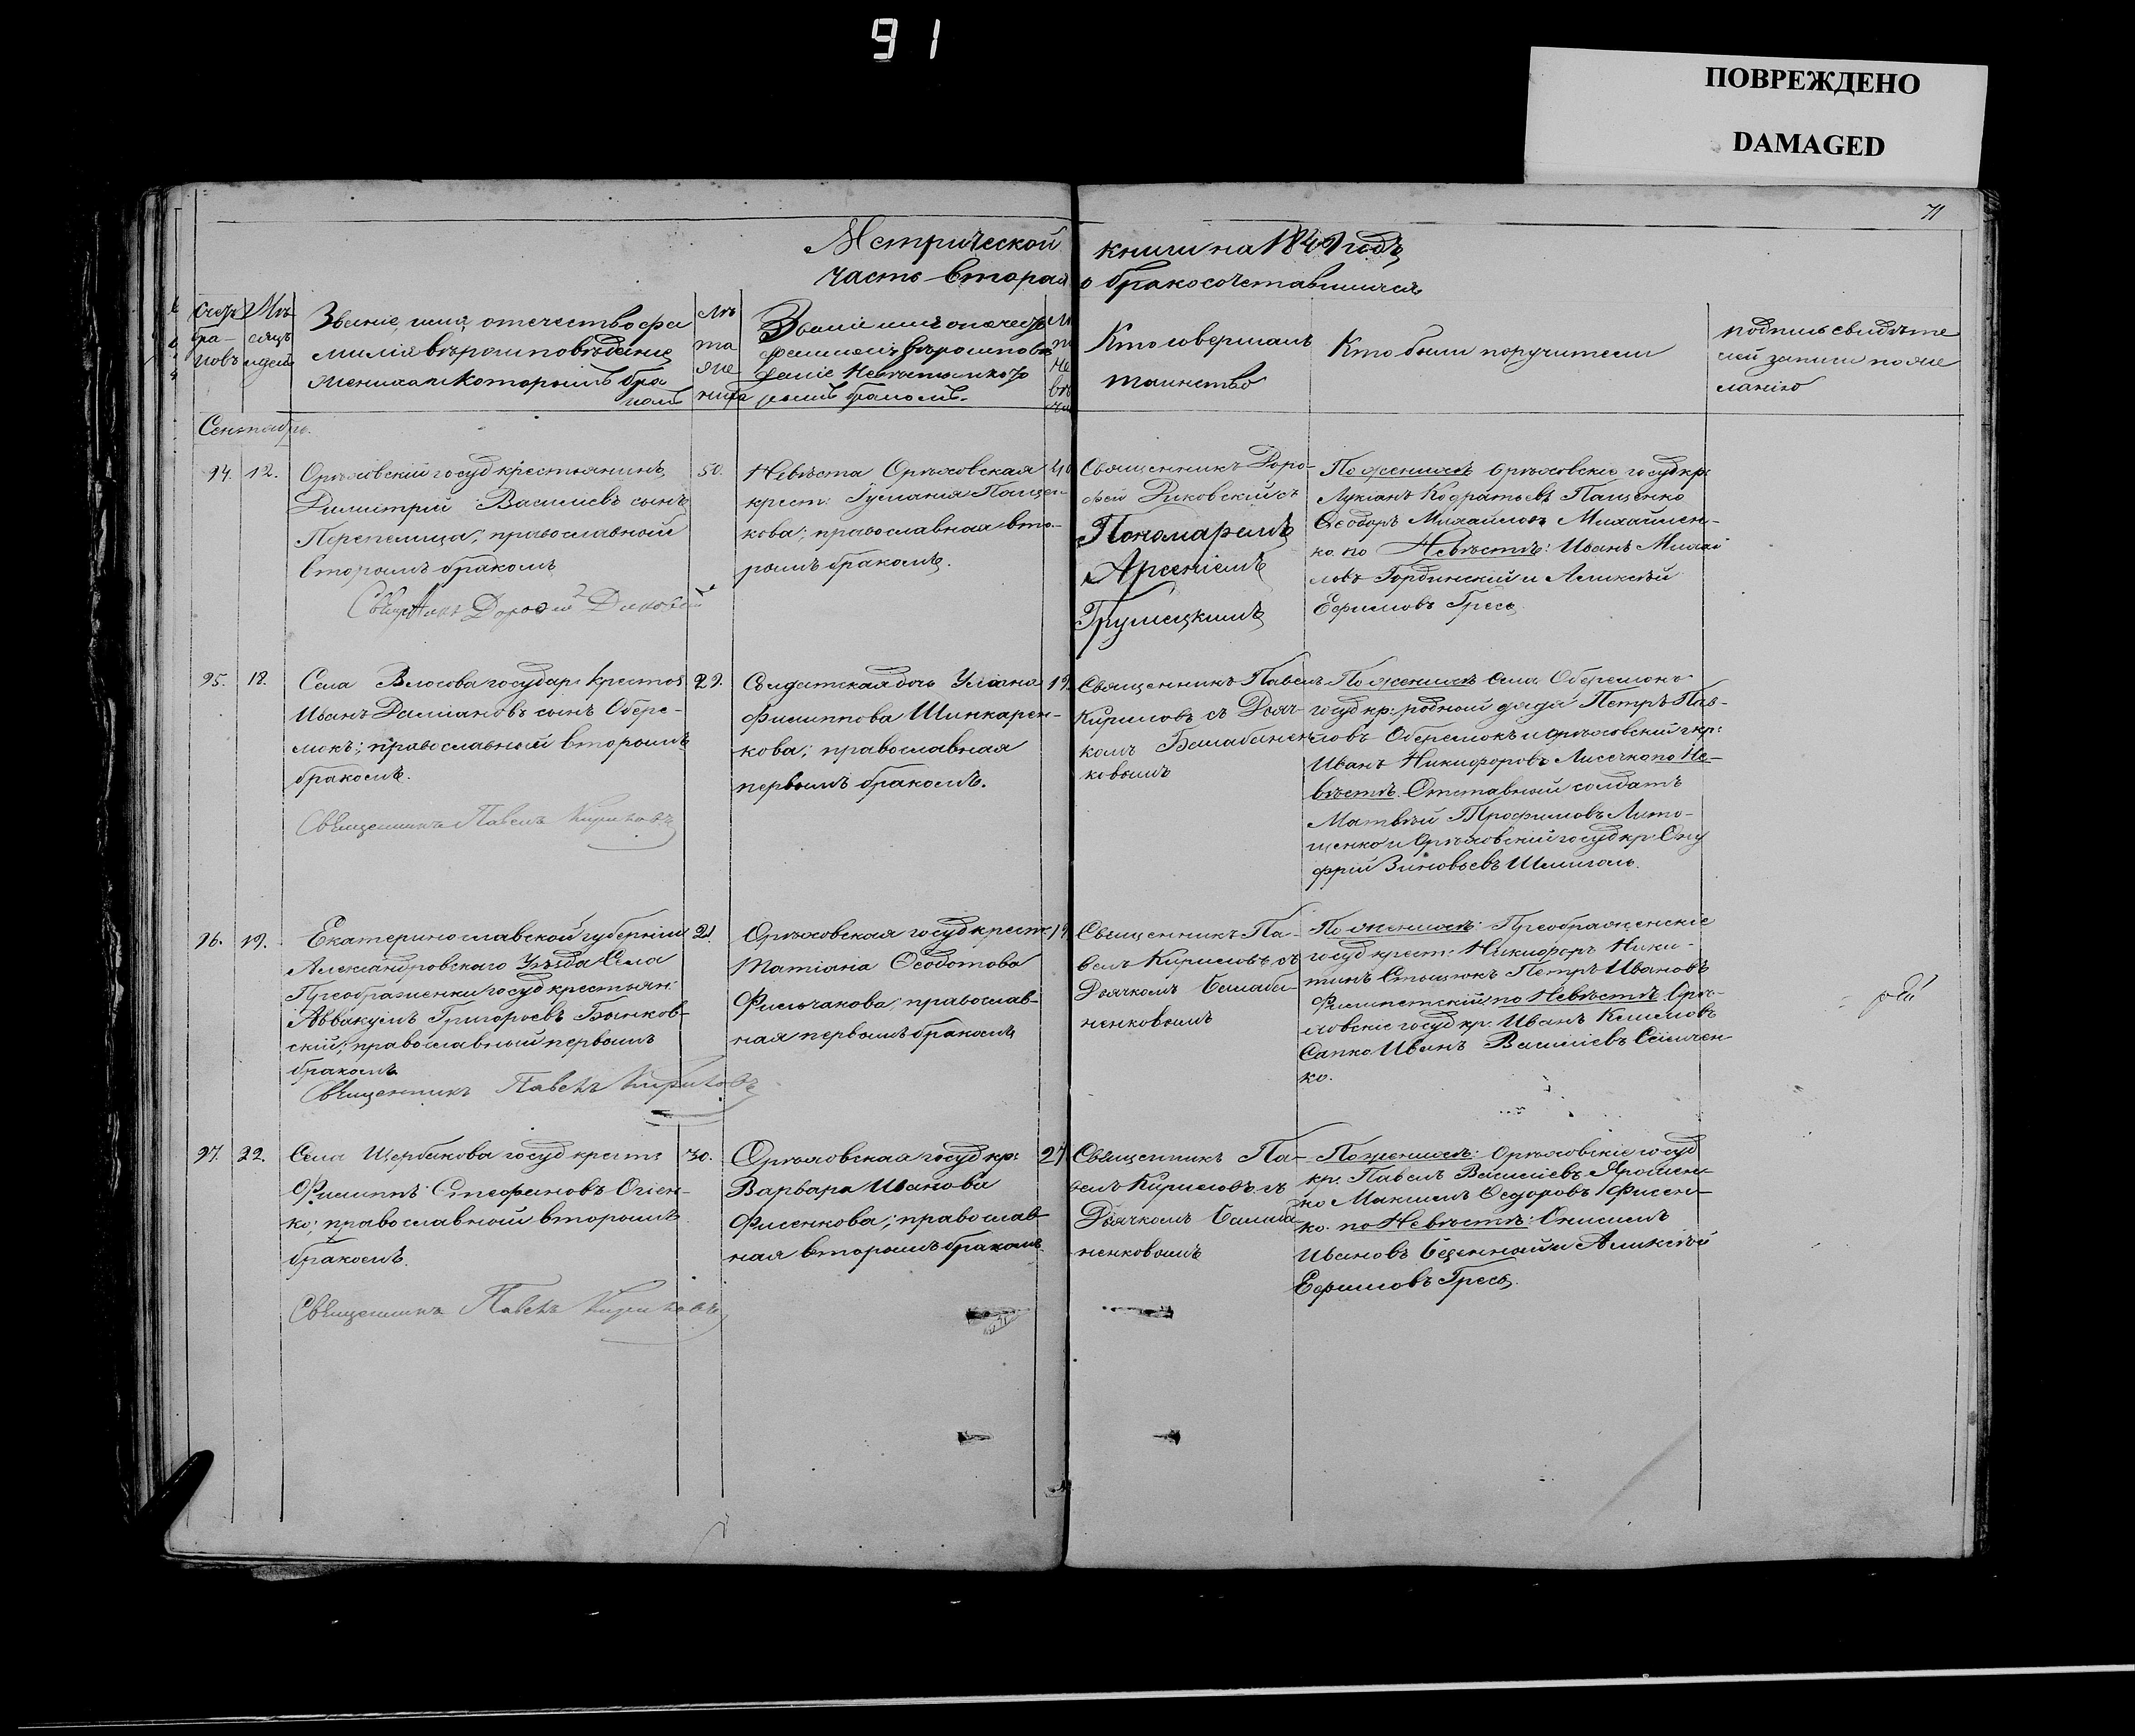 91
ПОВРЕЖДЕНО
DAMAGED
71
Метрической книги на 1841 годъ
часть вторая о бракосочетавшихся
Счетъ браковъ
Мѣсяцъ и день
Званіе, имя, отечество, фа
милія и вѣроисповѣданіе
жениха и которымъ бра
комъ
Лѣ
та
же
ниха
Званіе имя отечест
фамилія и вѣроисповѣ
даніе невѣсты и кото
рымъ бракомъ.
Кто совершалъ
таинство
Кто были поручители
подпись свидѣте
лей записи по же
ланію
Сентябрь.
14. 12.
Орѣховскій госуд крестьянинъ
Димитрій Васильевъ сынъ
Перепелица; православный
вторымъ бракомъ
50.
Невѣста Орѣховская
крест: Гуліанія Пащен-
кова; православная вто-
рымъ бракомъ.
40
Священникъ Доро-
фей Диковскій съ
Пономаремъ
Арсеніемъ
Грушецкимъ
По женихѣ Орѣховскіе госуд кр:
Лукіанъ Кодратьевъ Пащенко
Ѳеодоръ Михайловъ Михайлен-
ко. по Невѣстѣ: Иванъ Михай
ловъ Гординскій и Алексѣй
Ефимовъ Гресь.
Священникъ Дорофей Диковскій
15. 18.
Села Власова государ: крестья
Иванъ Даміановъ сынъ Обере-
мокъ; православный вторымъ
бракомъ.
29.
Солдатская дочь Уліана
Филиппова Шинкарен-
кова; православная
первымъ бракомъ.
19.
Священникъ Павелъ
Кириловъ съ Дьяч-
комъ Балабанен
ковымъ
По женихѣ села Оберемокъ
госуд кр: родной дядя Петръ Пав-
ловъ Оберемокъ и орѣховскій г кр:
Иванъ Никифоровъ Лисечко по Не-
вѣстѣ. Отставной солдатъ
Матвѣй Трофимовъ Лито-
щенко и Орѣховскій госуд кр: Ону
фрій Зиновьевъ Шмиголь.
Священникъ Павелъ Кириловъ
16. 19.
Екатеринославской губерніи
Александровскаго Уѣзда Села
Преображенки госуд крестьян:
Аввакумъ Григорьевъ Бынков-
скій; православный первымъ
бракомъ
21.
Орѣховская госуд крест:
Татіана Ѳедотова
Фильчакова; православ-
ная первымъ бракомъ
19
Священникъ Па-
велъ Кириловъ съ
Дьячкомъ Балаба-
ненковымъ
По женихѣ: Преображенскіе
госуд крест: Никифоръ Ники-
тинъ Стецюкъ Петръ Ивановъ
Филипетскій по Невѣстѣ: Орѣ-
ховскіе госуд кр. Иванъ Климовъ
Сапко Иванъ Васильевъ Семичен-
ко.
Священникъ Павелъ Кириловъ
17. 22.
Села Щербакова госуд крестъ
Филиппъ Стефановъ Огіен-
ко; православный вторымъ
бракомъ.
30.
Орѣховская госуд кр:
Варвара Иванова
Фисенкова; православ
ная вторымъ бракомъ.
27
Священникъ Па-
велъ Кириловъ съ
Дьячкомъ Балаба
ненковымъ
По женихѣ: Орѣховскіе госуд
кр. Павелъ Васильевъ Ярошен-
ко Максимъ Ѳедоровъ Фисен-
ко. по Невѣстѣ: Онисимъ
Ивановъ и Алексѣй
Ефимовъ Гресь.
Священникъ Павелъ Кириловъ